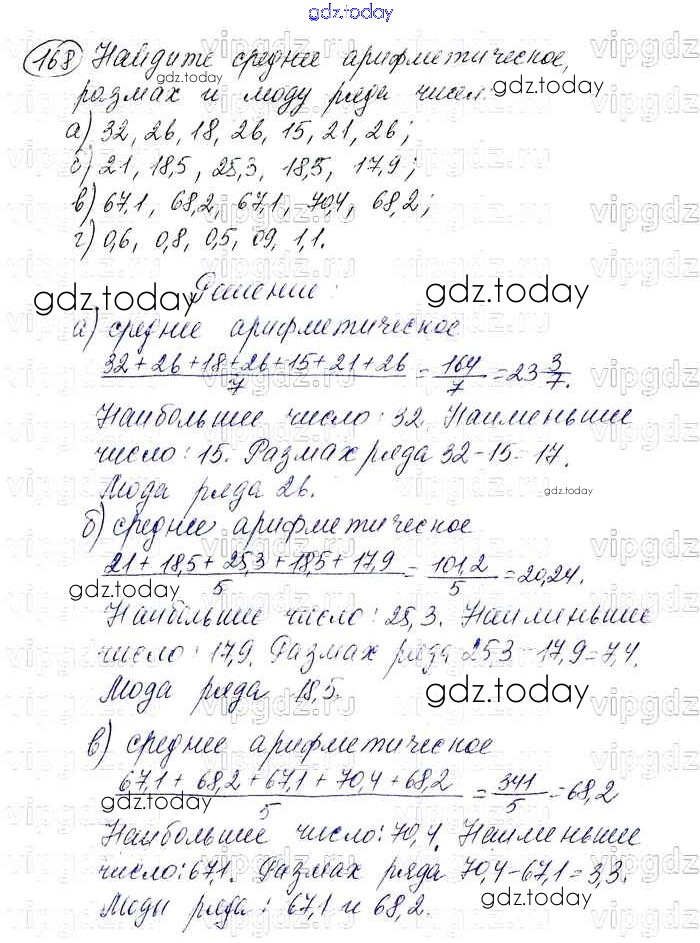 gdz.today
168 Найдите среднее арифметическое,
gdz.today
размах и моду ряда чисел:
а) 32, 26, 18, 26, 15, 21, 26;
б) 21, 18,5, 25,3, 18,5, 17,9;
в) 67,1, 68,2, 67,1, 70,4, 68,2;
г) 0,6, 0,8, 0,5, 09, 1,1.
Решение:
gdz.today gdz.today
а) среднее арифметическое
32+26+18+26+15+21+26/7 = 164/7 = 23 3/7.
Наибольшее число: 32. Наименьшее
число: 15. Размах ряда 32-15=17.
Мода ряда 26.
gdz.today
б) среднее арифметическое
21+18,5+25,3+18,5+17,9/5 = 101,2/5 = 20,24.
gdz.today
Наибольшее число: 25,3. Наименьшее
число: 17,9. Размах ряда 25,3-17,9=7,4.
Мода ряда 18,5.
gdz.today
в) среднее арифметическое
67,1+68,2+67,1+70,4+68,2/5 = 341/5 = 68,2
gdz.today
Наибольшее число: 70,4. Наименьшее
число: 67,1. Размах ряда 70,4-67,1=3,3.
gdz.today
Моды ряда: 67,1 и 68,2.